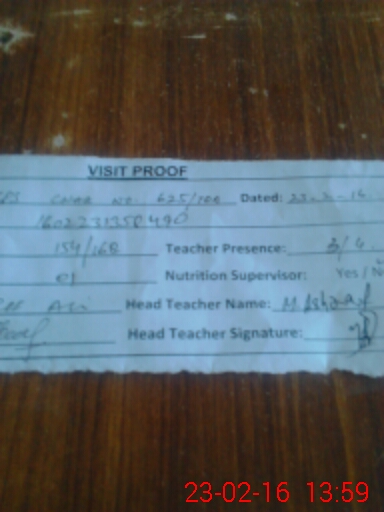 VISIT PROOF
No. 625/ Dated: 23-2-16
1602231350490
154/168 Teacher Presence: 3/4
01 Nutrition Supervisor: Yes / N
Ali Head Teacher Name: M. Ashraf
Head Teacher Signature:
23-02-16 13:59